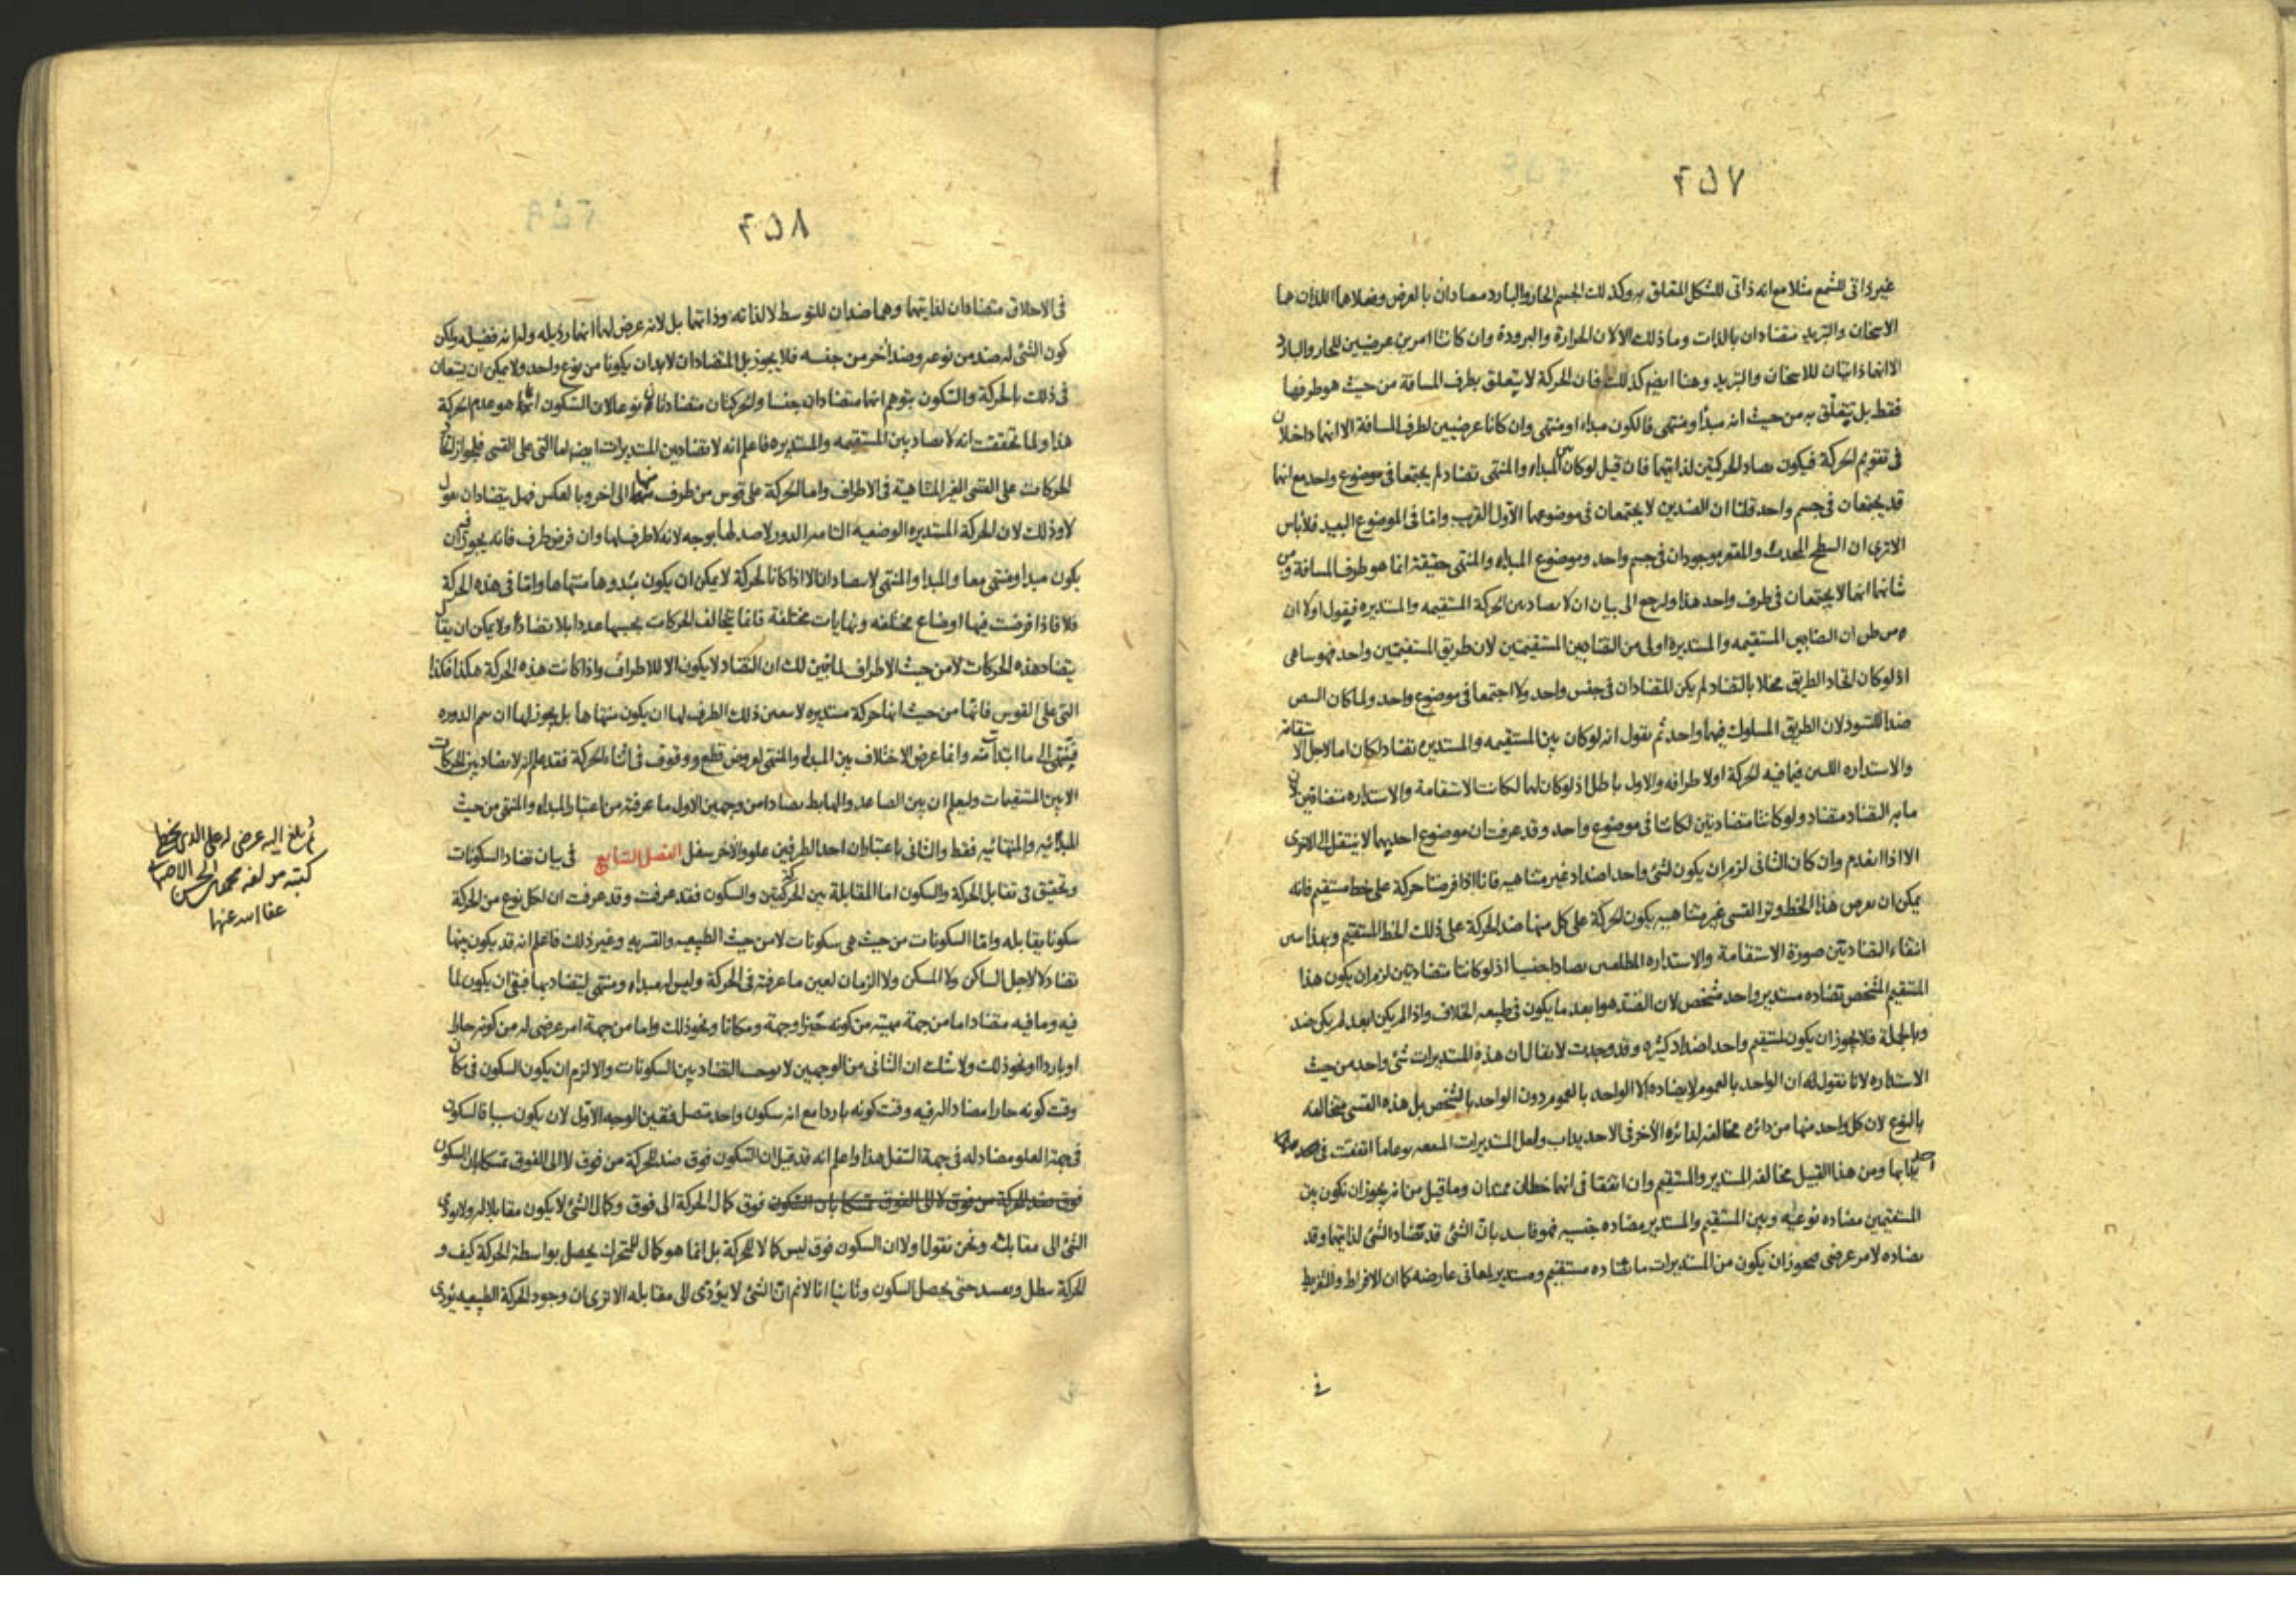 ۴۵۷
غير ذاتى للشمع مثلا مع انه ذاتى للشكل المتعلق به وكذلك الجسم الحار والبارد مضادان بالعرض وفعلاهما اللذان هما
الاسخان والتبريد متضادان بالذات وما ذلك الا لان الحرارة والبرودة وان كانتا امرين عرضيين للحار والبارد
الا انهما ذاتيتان للاسخان والتبريد وهنا ايضا كذلك فان الحركة لا يتعلق بطرف المسافة من حيث هو طرفها
فقط بل يتعلق به من حيث انه مبدأ ومنتهى فالكون مبداء او منتهى وان كانا عرضيين لطرف المسافة الا انهما داخلان
فى تقويم الحركة فيكون تضاد الحركتين لذاتيهما فان قيل لو كان بين المبداء والمنتهى تضاد لم يجتمعا فى موضوع واحد مع انهما
قد يجتمعان فى جسم واحد قلنا ان الضدين لا يجتمعان فى موضوعهما الاول القريب واما فى الموضوع البعيد فلا باس
الا ترى ان السطح المحدب والمقعر موجودان فى جسم واحد وموضوع المبداء والمنتهى حقيقة انما هو طرف المسافة ومن
شانهما انهما لا يجتمعان فى طرف واحد هذا ولنرجع الى بيان ان لا تضاد بين الحركة المستقيمه والمستديره فيقول اولا ان
من ظن ان التضاد بين المستقيمه والمستديره اولى من التضاد بين المستقيمتين لان طريق المستقيمتين واحد فهو ساهى
اذ لو كان اتحاد الطريق مخلا بالتضاد لم يكن المتضادان فى جنس واحد ولا اجتمعا فى موضوع واحد ولما كان البيض
ضدا للتسود لان الطريق المسلوك فيهما واحد ثم نقول انه لو كان بين المستقيمه والمستديره تضاد لكان اما لاجل الاستقامة
والاستداره اللتين فيما فيه الحركة او لاطرافه والاول باطل اذ لو كان لهما لكانت الاستقامة والاستداره متضادتين لان
ما به التضاد متضاد ولو كانتا متضادتين لكانتا فى موضوع واحد وقد عرفت ان موضوع احديهما لا ينتقل الى الاخرى
الا اذا انعدم وان كان الثانى لزم ان يكون لشئ واحد اضداد غير متناهيه فانا اذا فرضنا حركة على خط مستقيم فانه
يمكن ان يعرض هذا الخط وترا لقسى غير متناهيه يكون الحركة على كل منها ضد الحركة على ذلك الخط المستقيم وبهذا
انتفاء التضاد بين صورة الاستقامة والاستداره تضادا جنسيا اذ لو كانتا متضادتين لزم ان يكون هذا
المستقيم المشخص تضاده مستدير واحد مشخص لان الضد هو ابعد ما يكون فى طبيعه الخلاف واذا لم يكن ابعد لم يكن ضد
وبالجملة فلا يجوز ان يكون لمستقيم واحد اضداد كثيره وقد وجدت لا يقال ان هذه المستديرات شئ واحد من حيث
الاستداره لانا نقول له ان الواحد بالعموم لا يضاده الا الواحد بالعموم دون الواحد بالشخص بل هذه القسى متخالفه
بالنوع لان كل واحد منها من دائره مخالفه لدائره الاخر فى الاحديداب ولعل المستديرات نوعا ما اتفقت فى
ومن هذا القبيل مخالفه المستدير والمستقيم وان اتفقتا فى انهما خطان ممتدان وما قيل من انه يجوز ان تكون بين
المستقيمين مضاده نوعيه وبين المستقيم والمستدير مضاده جنسيه فهو فاسد بان الشئ قد تضاد الشئ لذاتيهما وقد
تضاده لامر عرضى فيجوز ان يكون من المستديرات ما تضاده مستقيم ومستدير لمعانى عارضه كما ان الافراط والتفريط
فى
۴۵۸
فى الاخلاق متضادان لذاتيهما وهما ضدان للتوسط لا لذاته وذاتهما بل لانه عرض لهما انهما رذيله وله انه فضيله ولكن
كون الشئ له ضد من نوعه وضد اخر من جنسه فلا يجوز بل المتضادان لا بد ان يكونا من نوع واحد ولا يمكن ان يستعان
فى ذلك بالحركة والسكون بتوهم انهما متضادان جنسا والحركتان متضادتان نوعا لان السكون انما هو عدم الحركة
هذا ولما تحققت انه لا تضاد بين المستقيمه والمستديره فاعلم انه لا تضاد بين المستديرات ايضا اما التى على القسى فلجواز
الحركات على القسى الغير المتناهية فى الاطراف واما الحركة على قوس من طرف منها الى اخر وبالعكس فهل يتضادان نقول
لا وذلك لان الحركة المستديره الوضعيه التامه الدور لا ضد لها بوجه لانه لا طرف لها وان فرض طرف فانه يجوز فيه ان
يكون مبدا ومنتهى معا والمبدا والمنتهى لا يتضادان الا اذا كانا لحركة لا يمكن ان يكون مبدوها منتهاها واما فى هذه الحركة
فلا فاذا فرضت فيها اوضاع مختلفه ونهايات مختلفة فانما يتخالف الحركات بحسبها عددا بلا تضاد ولا يمكن ان يقال
بتضاد هذه الحركات لا من حيث الاطراف لما تبين لك ان التضاد لا يكون الا للاطراف واذا كانت هذه الحركة هكذا فكذا
التى على القوس فانها من حيث انها حركة مستديره لا يتعين ذلك الطرف لها ان يكون منتهاها بل يجوز لها ان يتم الدوره
فينتهى الى ما ابتدات منه وانما عرض الاختلاف بين المبداء والمنتهى لعروض قطع ووقوف فى اثناء الحركة فقد علم انه لا تضاد بين الحركات
الا بين المستقيمات وليعلم ان بين الصاعد والهابط تضادا من وجهين الاول ما عرفته من اعتبار المبداء والمنتهى من حيث
المبدائيه والمنتهائيه فقط والثانى باعتبار ان احد الطرفين علو والاخر سفل الفصل السابع فى بيان تضاد السكونات
وتحقيق فى تقابل الحركة والسكون اما المقابلة بين الحركة والسكون فقد عرفت وقد عرفت ان لكل نوع من الحركة
سكونا يقابله واما السكونات من حيث هى سكونات لا من حيث الطبيعيه والقسريه وغير ذلك فاعلم انه قد يكون بينها
تضاد لا لاجل الساكن ولا المسكن ولا الزمان لعين ما عرفته فى الحركة وليس له مبداء ومنتهى ليتضاد بهما فبقى ان يكون لما
فيه وما فيه متضاد اما من جهة مهيته من كونه حيزا وجهة ومكانا ونحو ذلك واما من جهة امر عرضى له من كونه حارا
او باردا ونحو ذلك ولا شك ان الثانى من الوجهين لا يوجب التضاد بين السكونات والا لزم ان يكون السكون فى مكان
وقت كونه حارا مضادا له فيه وقت كونه باردا مع انه سكون واحد متصل فتعين الوجه الاول لان يكون سببا فالسكون
فى جهة العلو مضاد له فى جهة السفل هذا واعلم انه قد قيل ان السكون فوق ضد للحركة من فوق لا الى الفوق تمسكا بان السكون
فوق ضد للحركة من فوق لا الى الفوق تمسكا بان السكون فوق كمال الحركة الى فوق وكمال الشئ لا يكون مقابلا له ولا يؤدى
الشئ الى مقابله ونحن نقول اولا ان السكون فوق ليس كمالا للحركة بل انما هو كمال للمتحرك يحصل بواسطة الحركة كيف و
الحركة تبطل وتفسد حتى يحصل السكون وثانيا انا لا نم ان الشئ لا يؤدى الى مقابله الا ترى ان وجود الحركة الطبيعيه يؤدى
ثم بلغ اليه عرضى له على الذى بخطى
كتبه مولفه محمد بن الحسن الاصبهانى
عفا الله عنهما